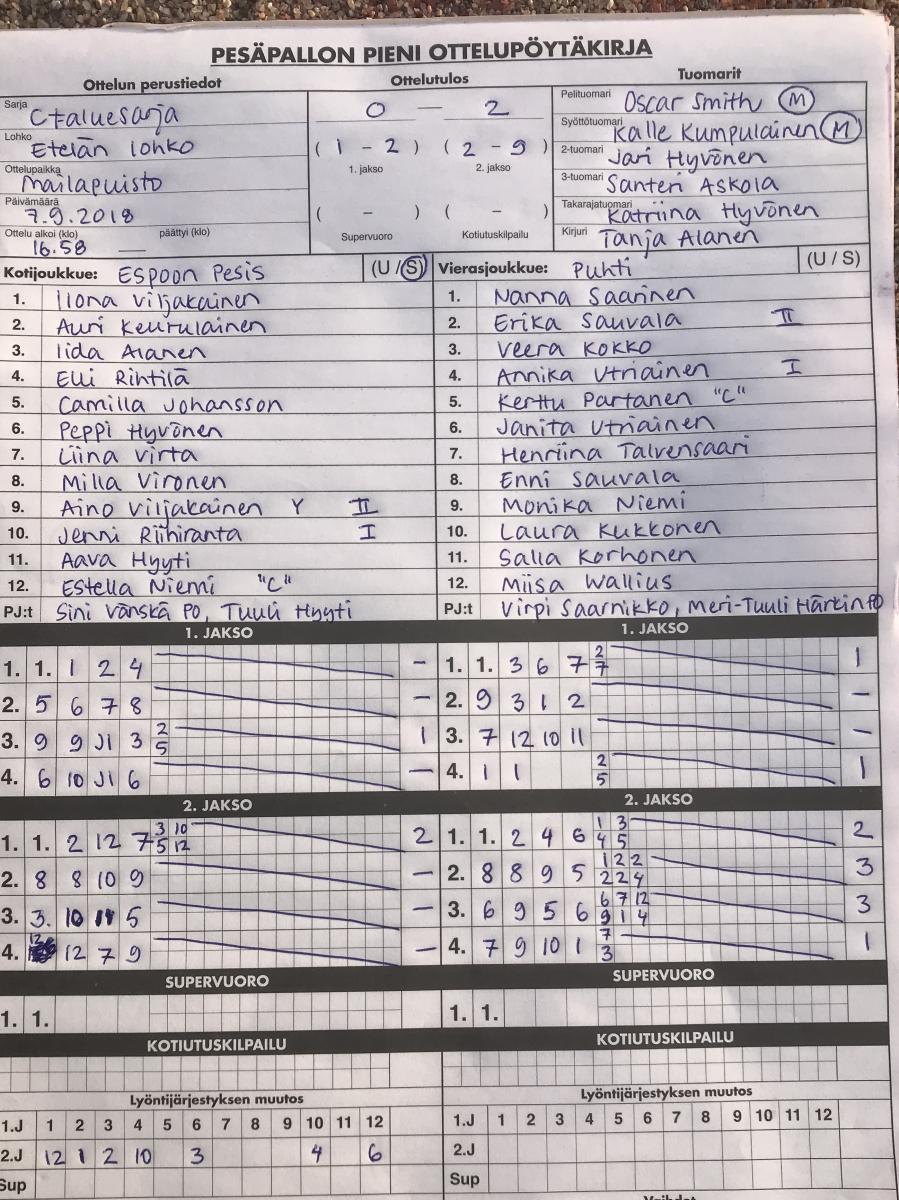 PESÄPALLON PIENI OTTELUPÖYTÄKIRJA
Ottelun perustiedot Ottelutulos Tuomarit
Sarja C+aluesarja
Lohko Etelän lohko
Ottelupaikka Mailapuisto
Päivämäärä 7.9.2018
Ottelu alkoi (klo) päättyi (klo)
16.58 —
0 — 2
( 1 - 2 ) ( 2 - 9 )
1. jakso 2. jakso
( - ) ( - )
Supervuoro Kotiutuskilpailu
Pelituomari Oscar Smith M
Syöttötuomari Kalle Kumpulainen M
2-tuomari Jari Hyvönen
3-tuomari Santeri Askola
Takarajatuomari Katriina Hyvönen
Kirjuri Tanja Alanen
Kotijoukkue: Espoon Pesis (U / S)
1. Ilona Viljakainen
2. Auri Keurulainen
3. Iida Alanen
4. Elli Rihtilä
5. Camilla Johansson
6. Peppi Hyvönen
7. Liina Virta
8. Milla Vironen
9. Aino Viljakainen Y II
10. Jenni Riihiranta I
11. Aava Hyyti
12. Estella Niemi "C"
PJ:t Sini Vänskä PO, Tuuli Hyyti
Vierasjoukkue: Puhti (U / S)
1. Nanna Saarinen
2. Erika Sauvala II
3. Veera Kokko
4. Annika Utriainen I
5. Kerttu Partanen "C"
6. Janita Utriainen
7. Henriina Talvensaari
8. Enni Sauvala
9. Monika Niemi
10. Laura Kukkonen
11. Salla Korhonen
12. Miisa Wallius
PJ:t Virpi Saarnikko, Meri-Tuuli
1. JAKSO
1. 1. 1 2 4 –
2. 5 6 7 8 –
3. 9 9 J1 3 2 5 1
4. 6 10 J1 6 –
1. JAKSO
1. 1. 3 6 7 2 7 1
2. 9 3 1 2 –
3. 7 12 10 11 –
4. 1 1 2 5 1
2. JAKSO
1. 1. 2 12 7 3 10 5 12 2
2. 8 8 10 9 –
3. 3. 10 11 5 –
4. 12 12 7 9 –
2. JAKSO
1. 1. 2 4 6 1 3 4 5 2
2. 8 8 9 5 1 2 2 2 2 4 3
3. 6 9 5 6 6 7 12 9 1 4 3
4. 7 9 10 1 7 3 1
SUPERVUORO SUPERVUORO
1. 1. 1. 1.
KOTIUTUSKILPAILU KOTIUTUSKILPAILU
Lyöntijärjestyksen muutos
1.J 1 2 3 4 5 6 7 8 9 10 11 12
2.J 12 1 2 10 3 4 6
Sup
Lyöntijärjestyksen muutos
1.J 1 2 3 4 5 6 7 8 9 10 11 12
2.J
Sup